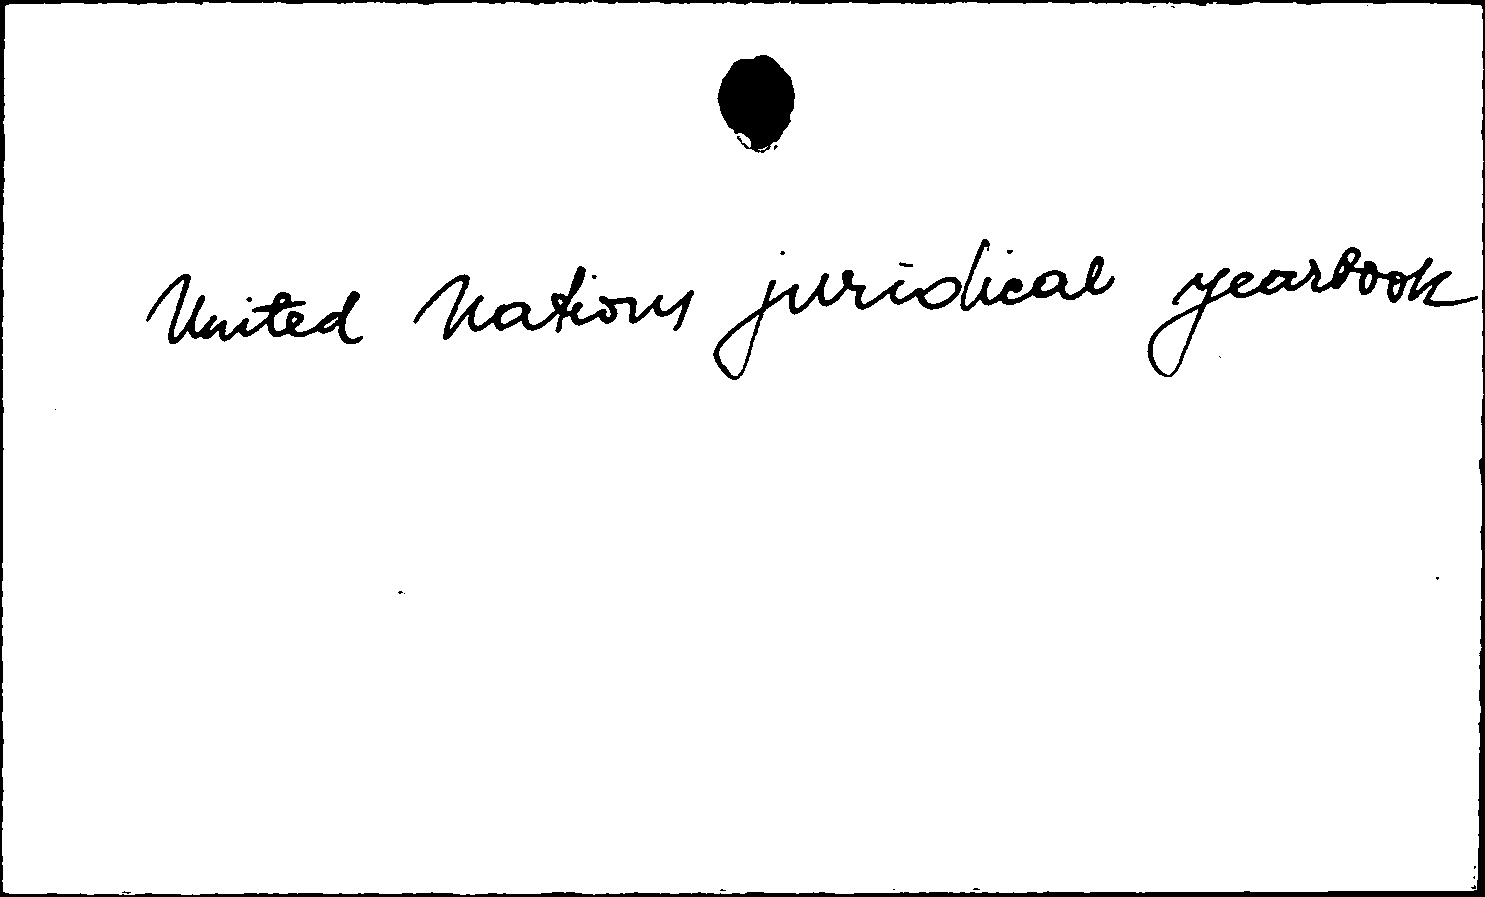 United Nations juridical yearbook